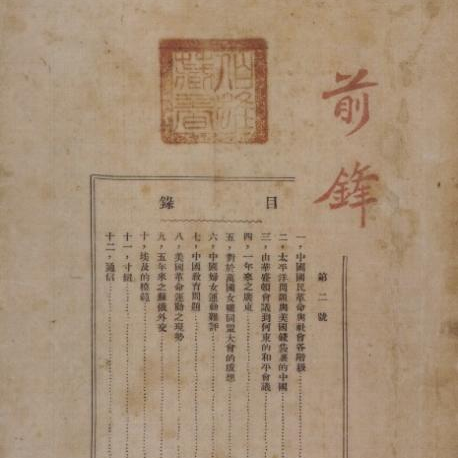 前鋒
目錄
第二號
一，中國國民革命與社會各階級
二，太平洋問題與美國錢袋裏的中國
三，由華盛頓會議到何東的和平會議
四，一年來之廣東
五，對於萬國女權同盟大會的感想
六，中國婦女運動雜評
七，中國教育問題
八，美國革命運動之現勢
九，五年來之蘇俄外交
十，埃及的模範
十一，寸鐵
十二，通信